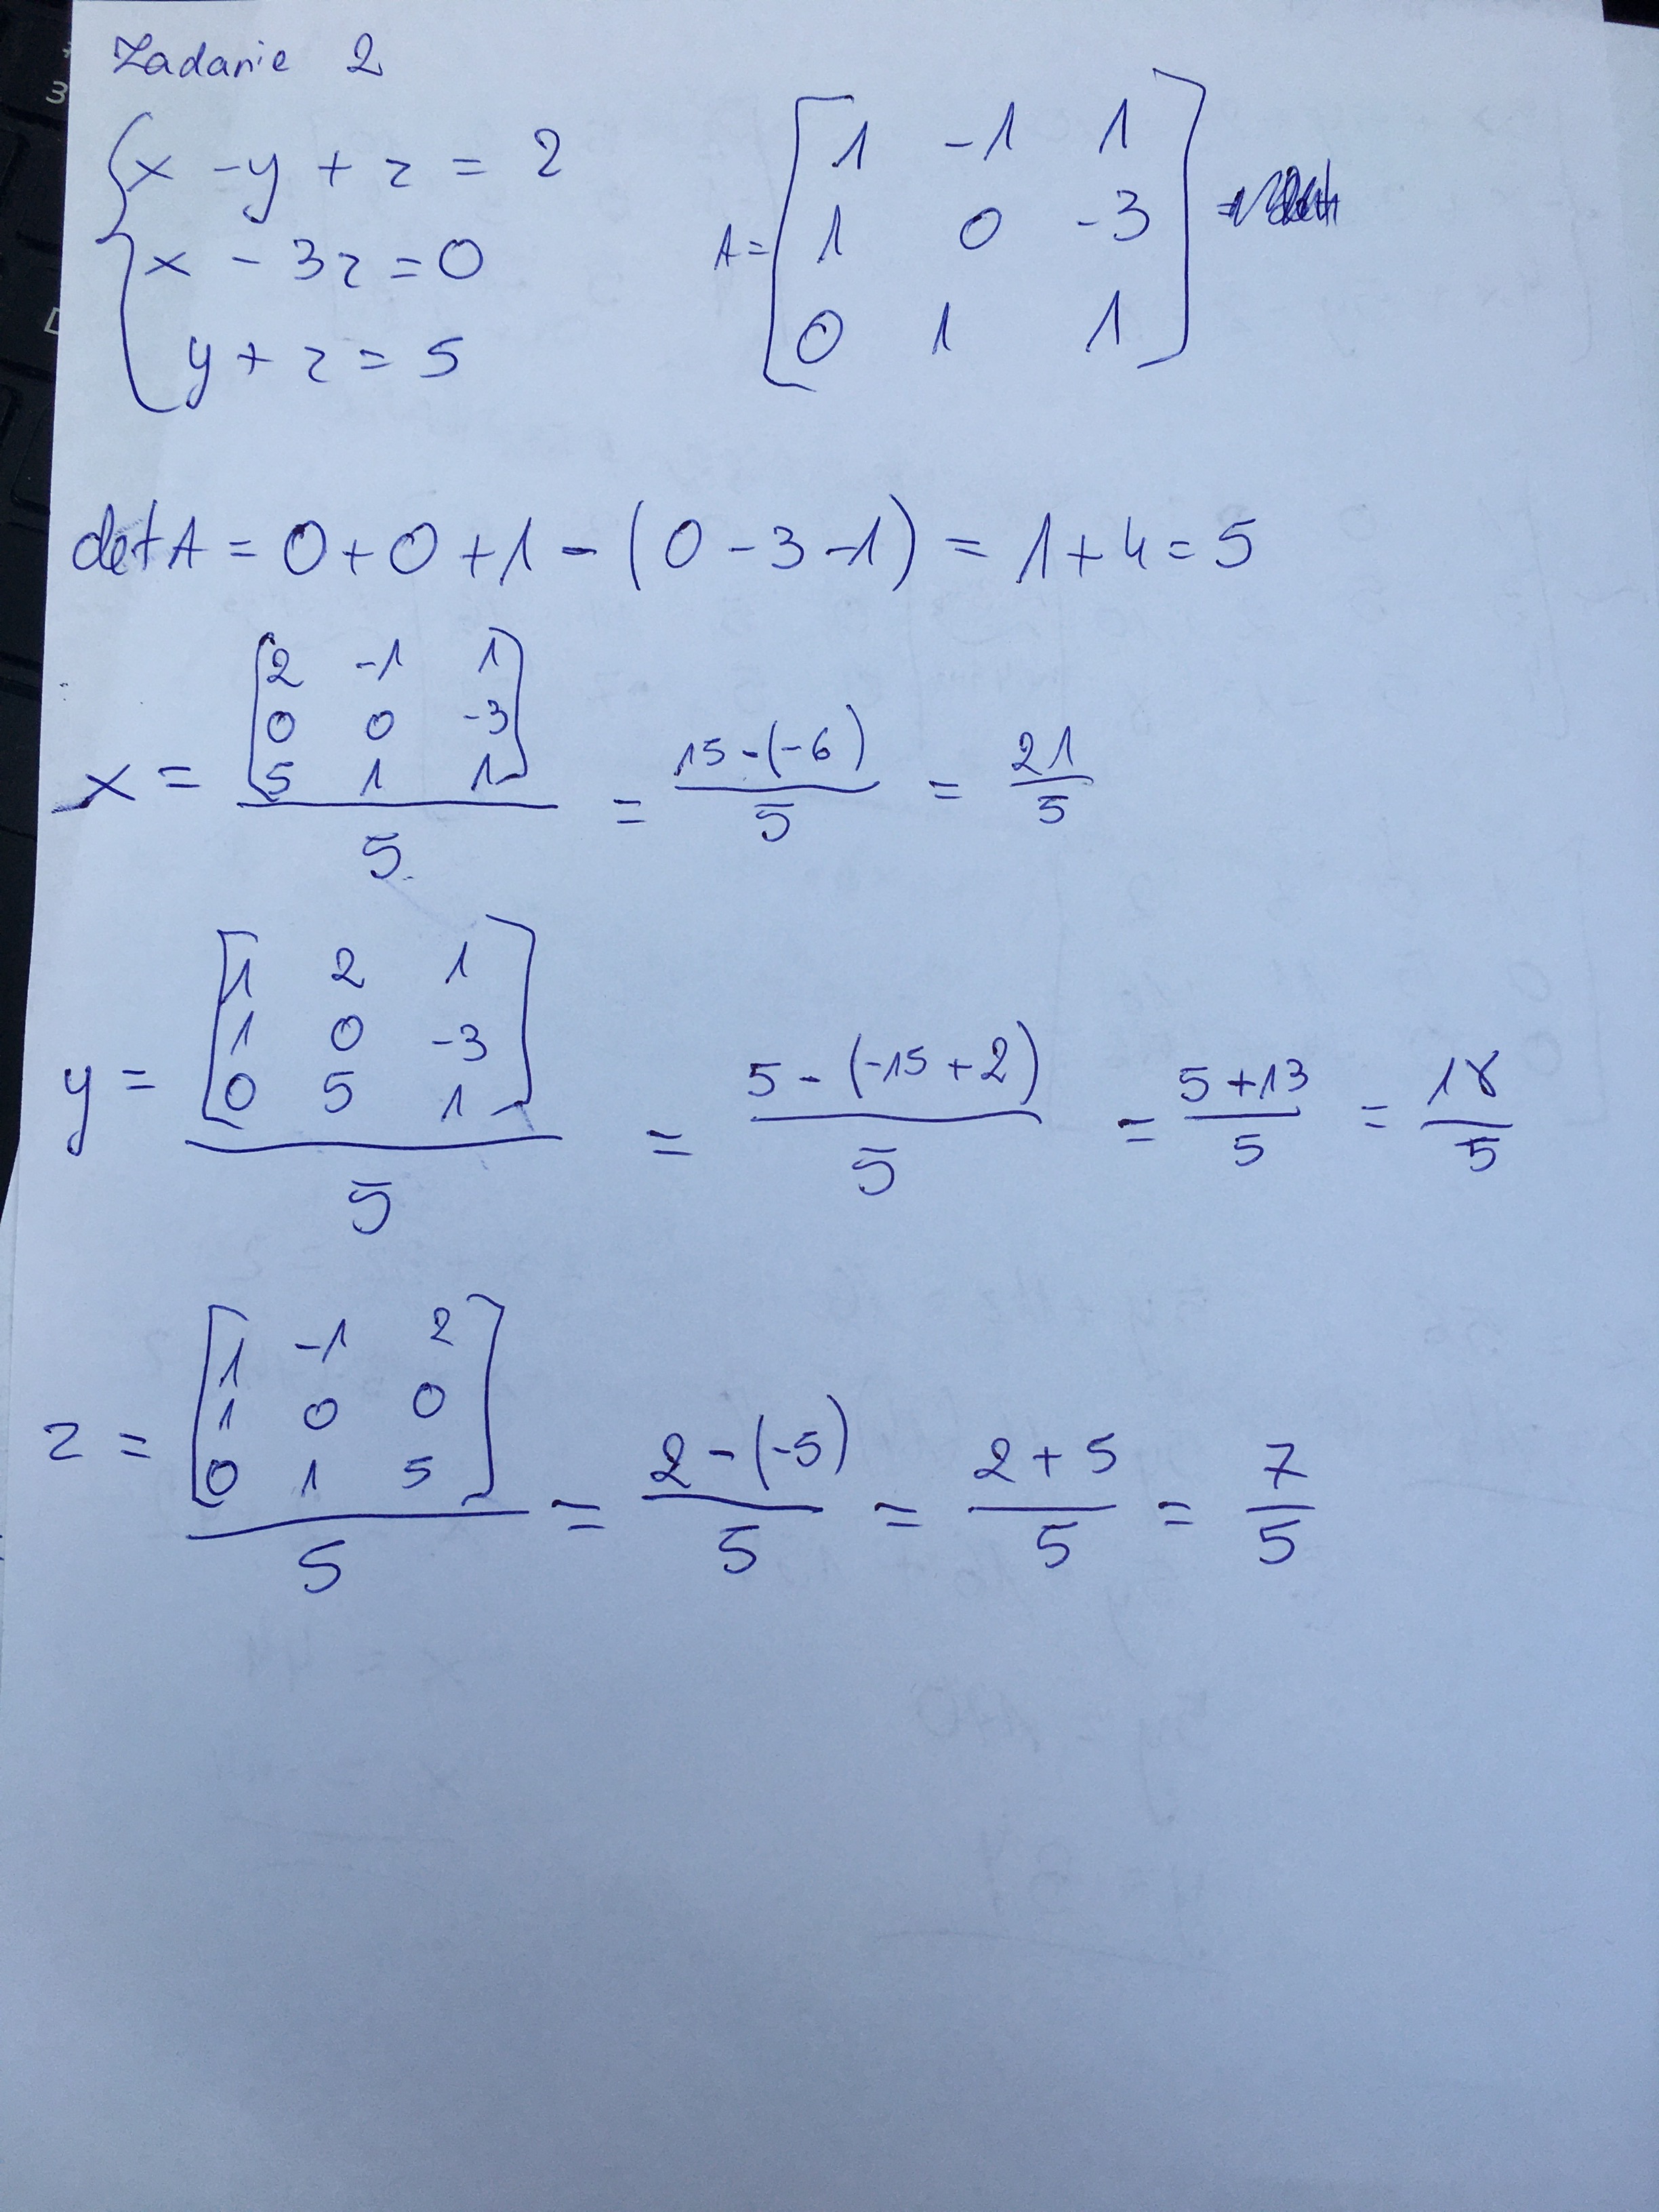 Zadanie 2
{ x - y + z = 2
x - 3z = 0
y + z = 5
A = [ 1 -1 1
1 0 -3
0 1 1 ] =
det A = 0 + 0 + 1 - (0 - 3 - 1) = 1 + 4 = 5
x = [ 2 -1 1
0 0 -3
5 1 1 ] / 5 = 15-(-6) / 5 = 21 / 5
y = [ 1 2 1
1 0 -3
0 5 1 ] / 5 = 5 - (-15 + 2) / 5 = 5 + 13 / 5 = 18 / 5
z = [ 1 -1 2
1 0 0
0 1 5 ] / 5 = 2 - (-5) / 5 = 2 + 5 / 5 = 7 / 5